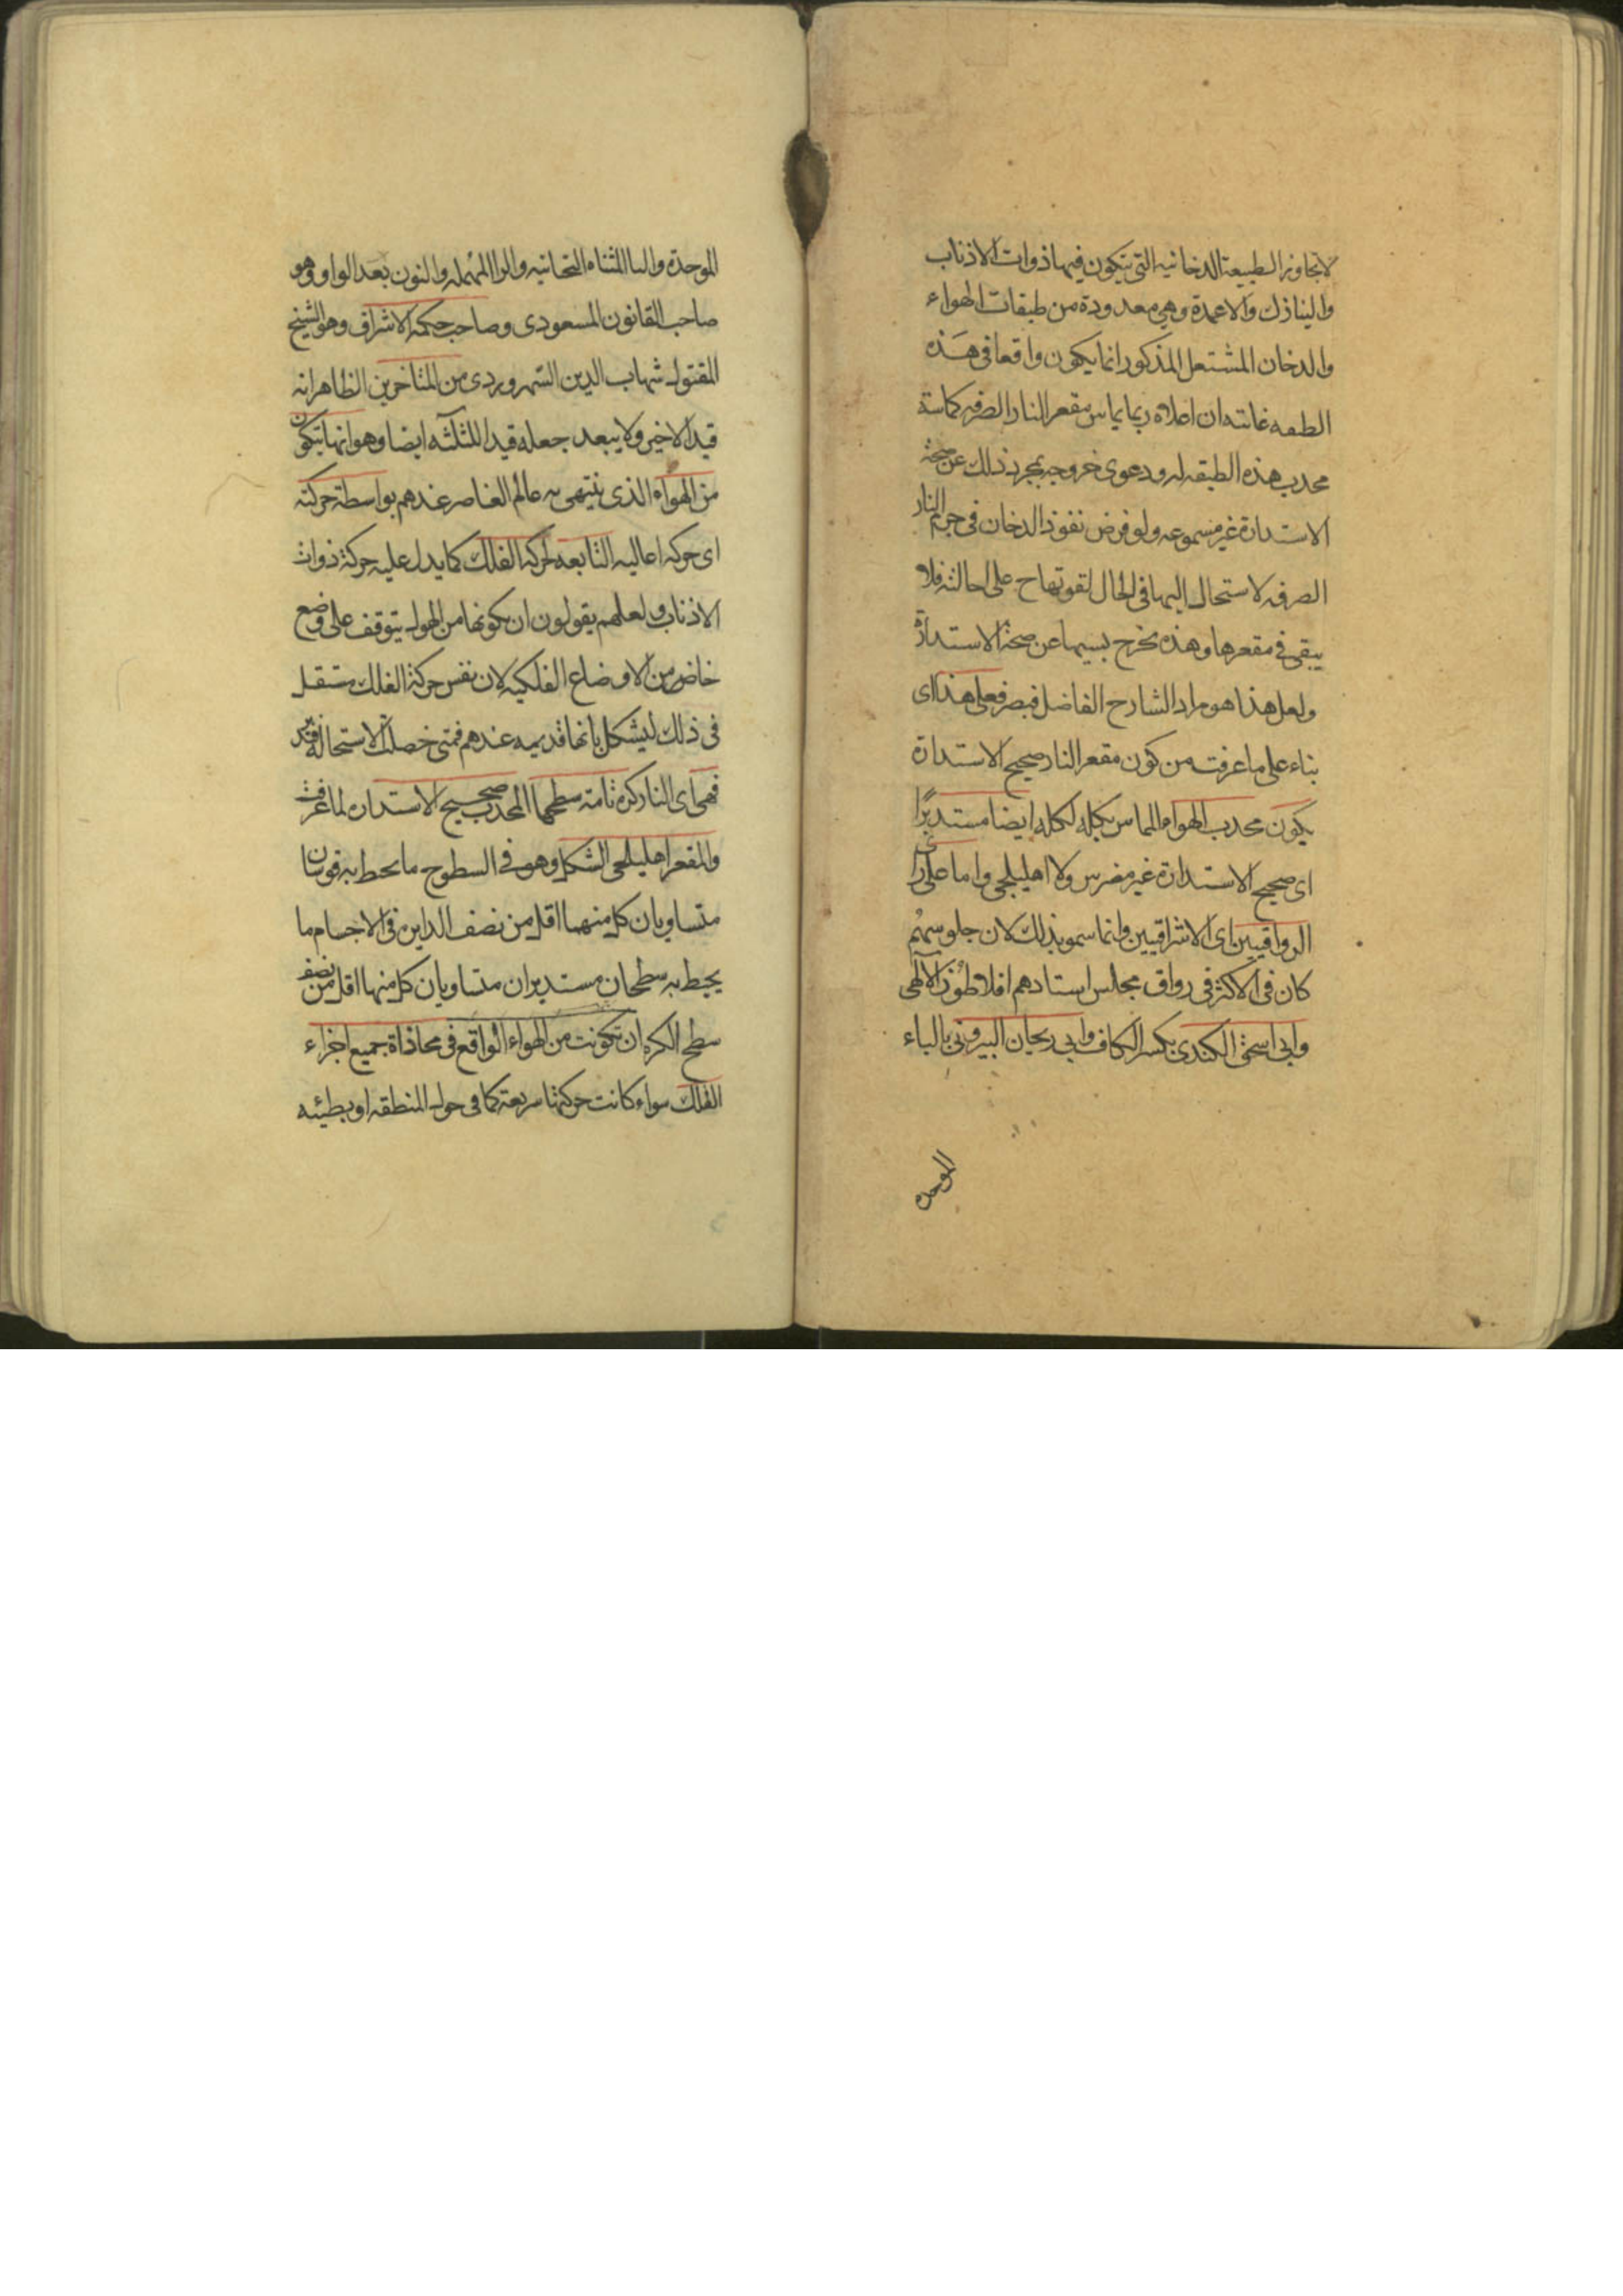 لا تجاوز الطبيعة الدخانيه التي يتكون فيها ذوات الاذناب
والنيازك والاعمدة وهي معدودة من طبقات الهواء
والدخان المشتعل المذكور انما يكون واقعا في هذه
الطبقه غايته ان اعلاه ربما يماس مقعر النار الصرفه كماسة
محدب هذه الطبقه له ودعوى خروجه بمجرد ذلك عن صحة
الاستدارة غير مسموعه ولو فرض نفوذ الدخان في جرم النار
الصرفه لاستحال اليها في الحال لقوتها ح على احالته فلا
يبقى في مقعرها وهذه تخرج بسيبها عن صحة الاستدارة
ولعل هذا هو مراد الشارح الفاضل فبصر فعلى هذا اى
بناء على ما عرفت من كون مقعر النار صحيح الاستدارة
يكون محدب الهواء المماس بكله لكله ايضا مستديرًا
اى صحيح الاستدارة غير مضرس ولا اهليلجي واما على راى
الرواقيين اى الاشراقيين وانما سمو بذلك لان جلوسهم
كان في الاكثر في رواق مجلس استادهم افلاطون الالهى
وابى اسحق الكندى بكسر الكاف وابى ريحان البيرونى بالباء
الموحده
الموحدة والىا المثناه التحانيه والرا المهمله والنون بعد الواو وهو
صاحب القانون المسعودى وصاحب حكمه الاشراق وهو الشيخ
المقتول شهاب الدين السهروردى من المتاخرين الظاهر انه
قيد الاخير ولا يبعد جعله قيدا للثلثه ايضا وهو انها تتكون
من الهواء الذى ينتهى به عالم العناصر عندهم بواسطة حركته
اى حركه اعاليه التابعه لحركة الفلك كما يدل عليه حركة ذوات
الاذناب ولعلهم يقولون ان تكونها من الهواء يتوقف على وضع
خاص من الاوضاع الفلكيه لان نفس حركة الفلك مستقل
في ذلك ليشكل بانها قديمه عندهم فمتى حصلت الاستحالة
فهى اى النار كره تامة سطحها المحدب صحيح الاستداره لما عرفت
والمقعر اهليلجى الشكل وهو في السطوح ما يحيط به قوسان
متساويان كل منهما اقل من نصف الدايره وفى الاجسام ما
يحيط به سطحان مستديران متساويان كل منها اقل من نصف
سطح الكره ان تكونت من الهواء الواقع في محاذاة جميع اجزاء
الفلك سواء كانت حركتها سريعة كما في حول المنطقه او بطيئه